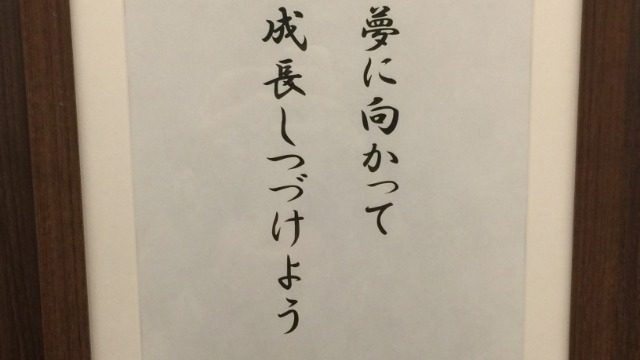 夢に向かって
成長しつづけよう